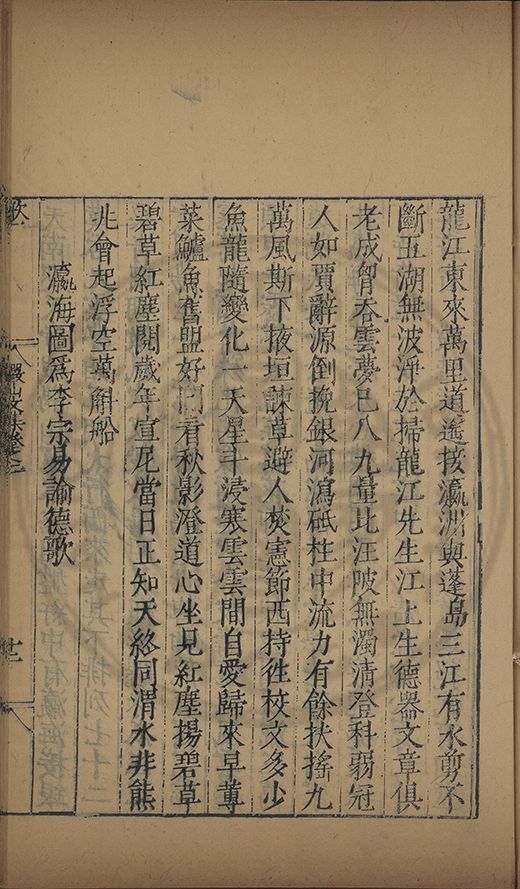 龍江東來萬里道遙接瀛洲與蓬島三江有水剪不
斷五湖無波淨於掃龍江先生江上生德器文章俱
老成胷吞雲夢已八九量比汪陂無濁清登科弱冠
人如賈辭源倒挽銀河瀉砥柱中流力有餘扶搖九
萬風斯下掖垣諫草避人焚憲節西持徃校文多少
魚龍隨變化一天星斗浸寒雲雲間自愛歸來早蓴
菜鱸魚舊盟好門看秋影澄道心坐見紅塵揚碧草
碧草紅塵閱歲年宣尼當日正知天終同渭水非熊
兆會起浮空萬斛船
瀛海圖爲李宗易諭德歌
歌
儼山文集卷之三
廿二